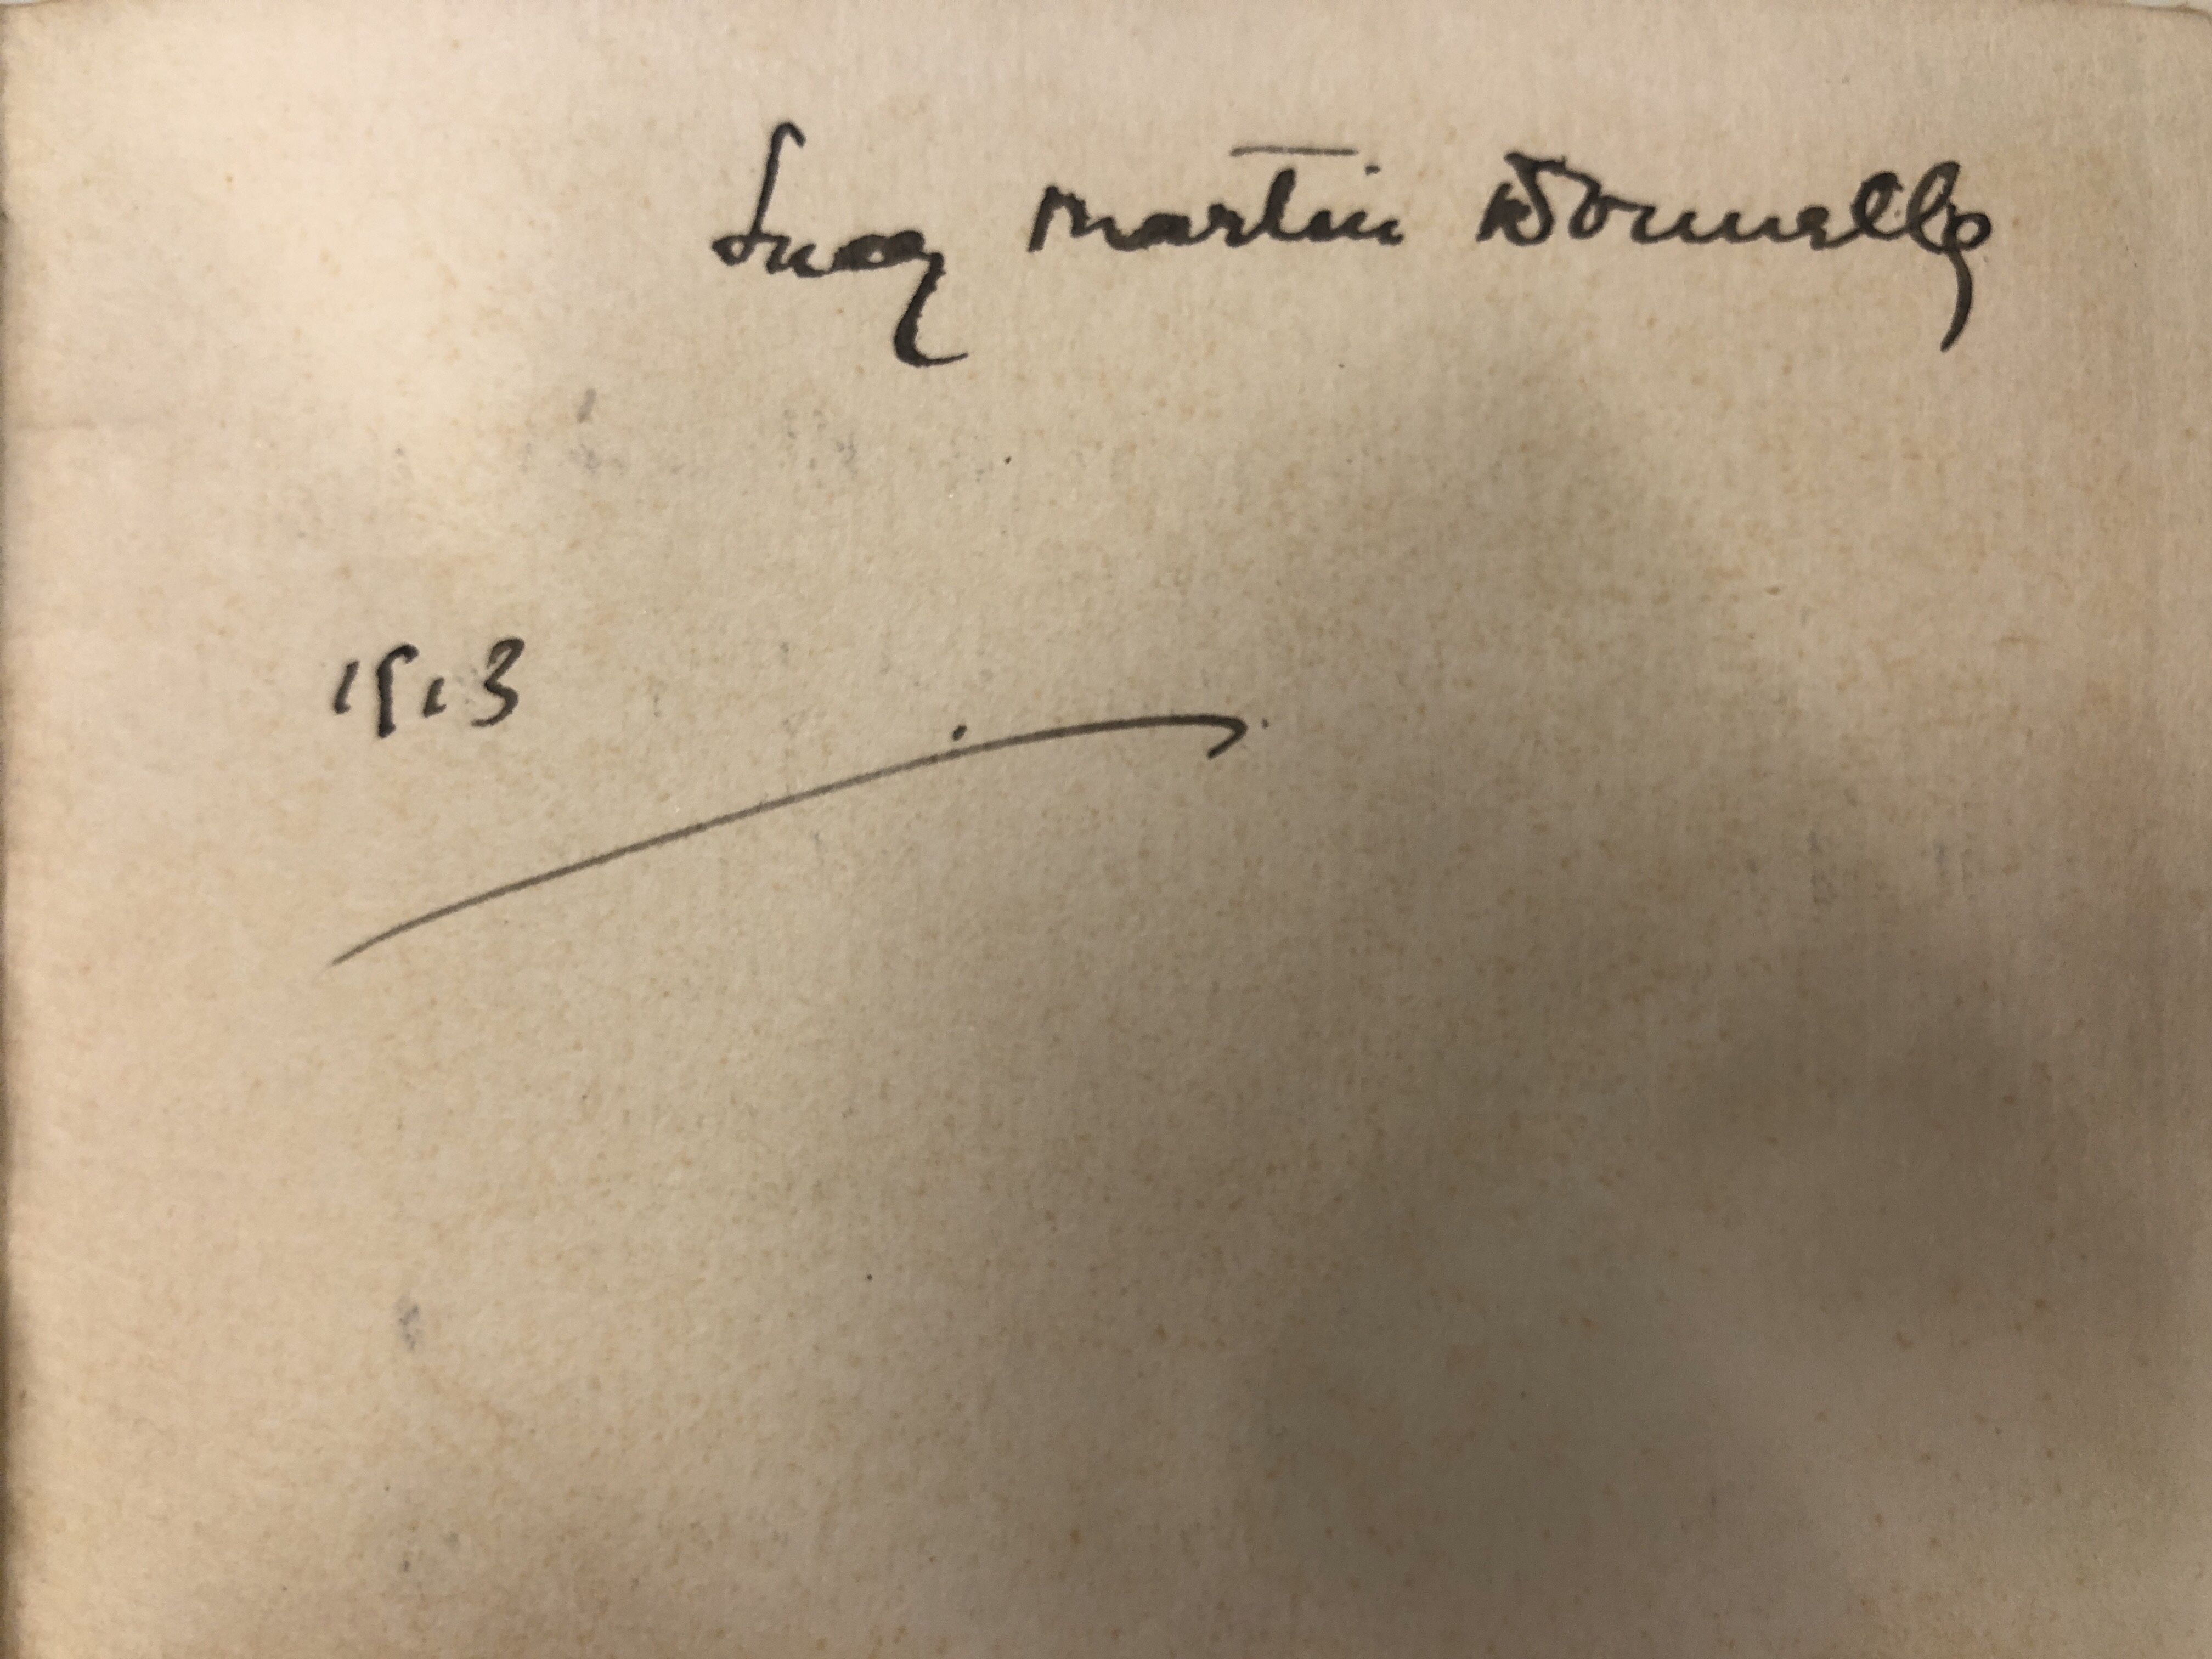 Lucy Martin Donnelly
1913